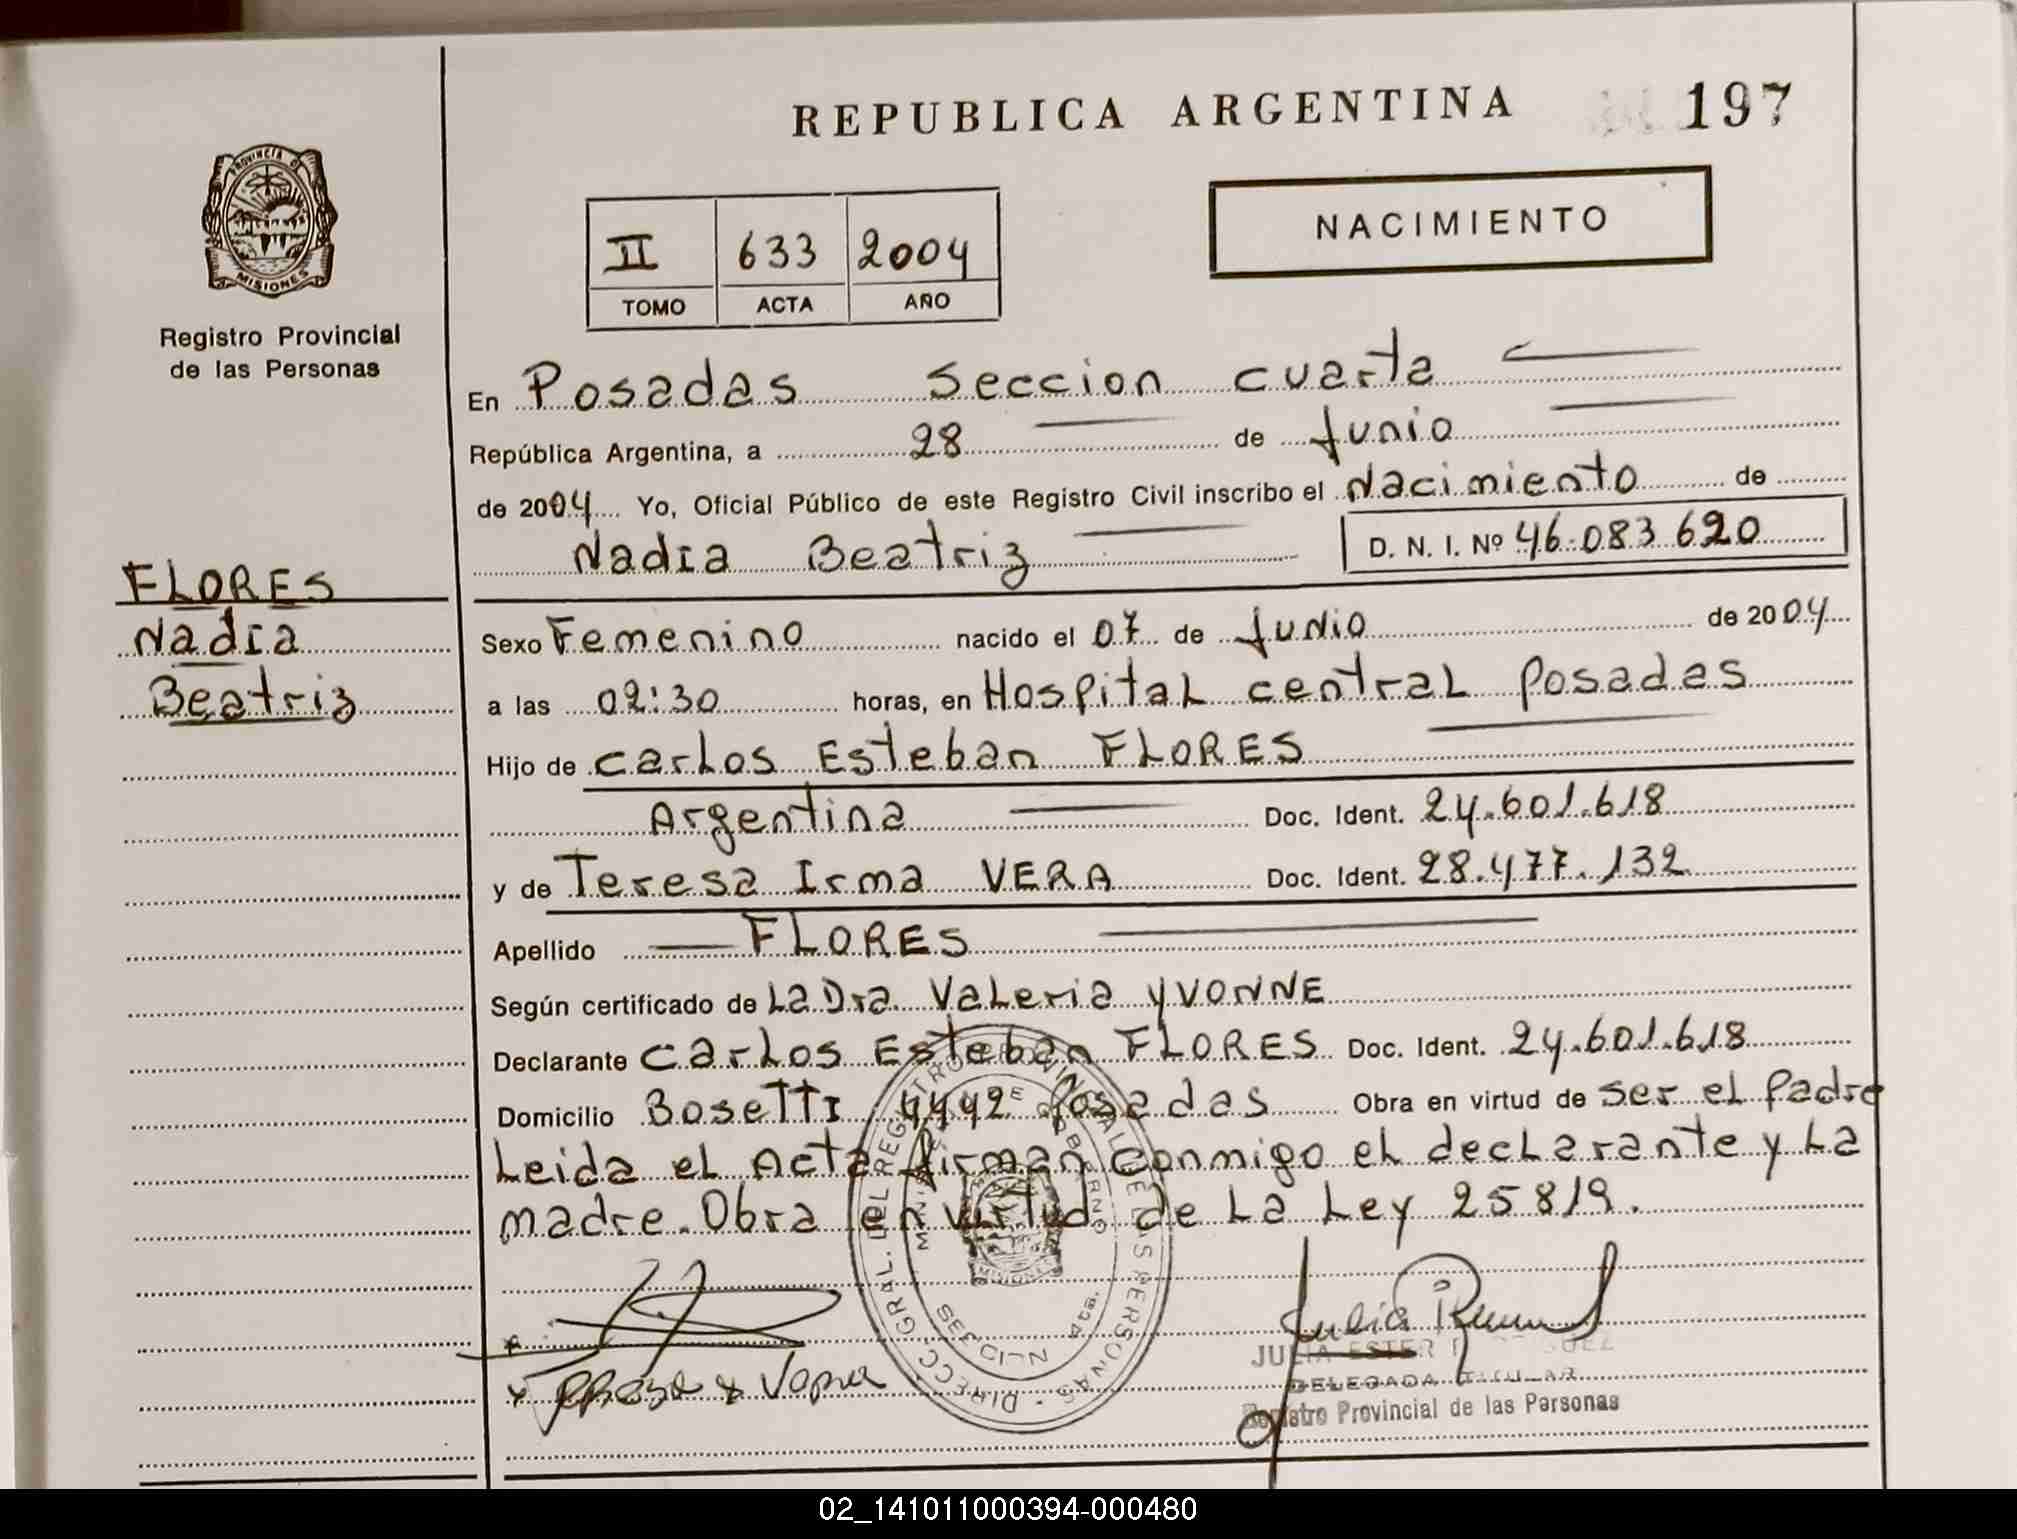 REPUBLICA ARGENTINA 197
PROVINCIA DE
MISIONES
Registro Provincial
de las Personas
NACIMIENTO
II 633 2004
TOMO ACTA AÑO
En Posadas Seccion cuarta
República Argentina, a 28 de Junio
de 2004 Yo, Oficial Público de este Registro Civil inscribo el Nacimiento de
Nadia Beatriz D. N. I. Nº 46.083.620
FLORES
Nadia
Beatriz
Sexo Femenino nacido el 07 de Junio de 2004
a las 02:30 horas, en Hospital central Posadas
Hijo de Carlos Esteban FLORES
Argentina Doc. Ident. 24.601.618
y de Teresa Irma VERA Doc. Ident. 28.477.132
Apellido FLORES
Según certificado de La Dra. Valeria YVONNE
Declarante Carlos Esteban FLORES Doc. Ident. 24.601.618
Domicilio Bosetti 4442 Posadas Obra en virtud de ser el Padre
Leida el Acta firman conmigo el declarante y La
madre. Obra en virtud de La Ley 25819.
DIRECC. GRAL. DEL REGISTRO PROVINCIAL DE LAS PERSONAS
MINISTERIO DE GOBIERNO
MISIONES
SECCION 4ta.
JULIA ESTER
DELEGADA TITULAR
Registro Provincial de las Personas
02_141011000394-000480